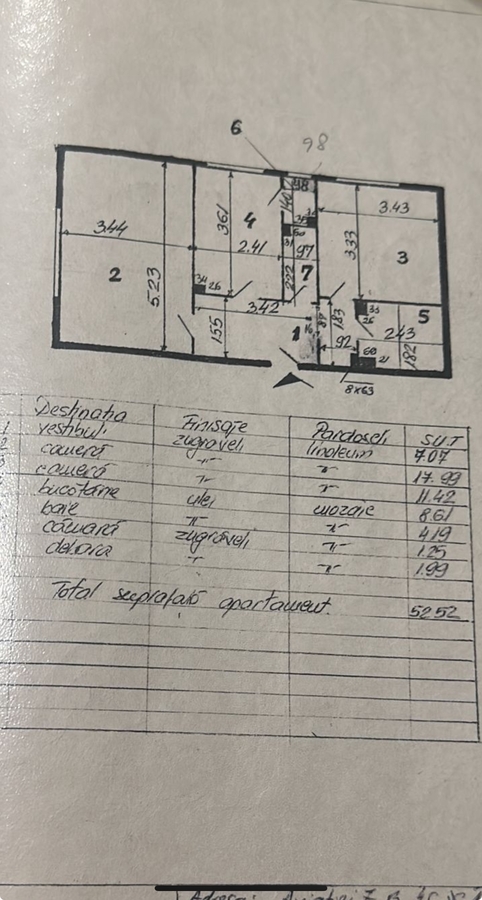 6
98
3.44
2
5.23
361
4
2.41
34
26
140
48
50
31
97
222
7
3.43
3.33
3
5
33
26
243
182
3.42
155
1
16
89
183
92
60
21
8x63
Destinatia Finisaje Pardoseli SUT
1 vestibul zugraveli linoleum 7.07
2 cameră -"- -"- 17.99
cameră -"- -"- 11.42
bucătărie ulei mozaic 8.61
baie -"- -"- 4.19
cămară zugrăveli -"- 1.25
debara -"- -"- 1.99
Total suprafață apartament. 52.52